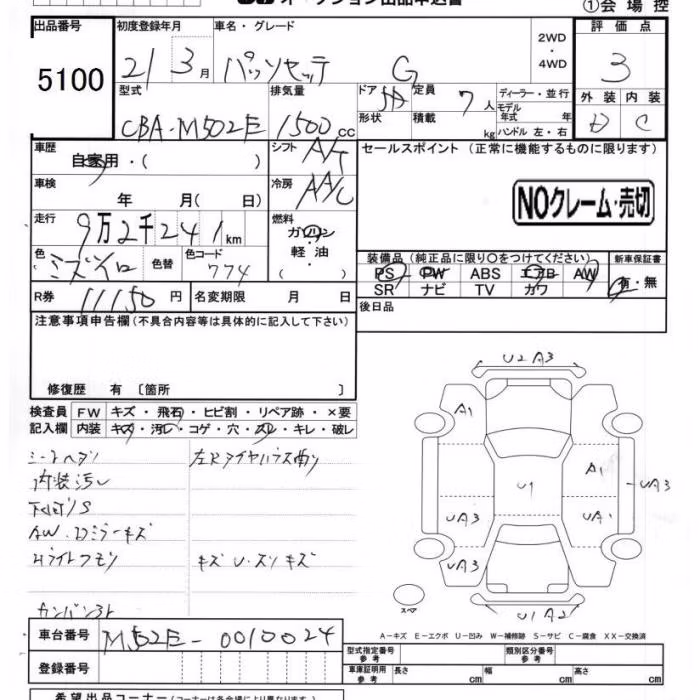 ①会場控
出品番号
5100
初度登録年月
21 3 月
車名・グレード
パッソセッテ G
2WD
・
4WD
評価点
3
外装 内装
D C
型式
CBA-M502E
排気量
1500 cc
ドア 5D
形状
定員 7 人
積載 kg
ディーラー・並行
モデル年式 年
ハンドル 左・右
車歴
自家用・( )
シフト
A/T
車検
年 月( 日)
冷房
AA/C
走行
9万2千241km
燃料
ガソリン
軽・油
( )
色
ミズイロ
色替
色コード
774
R券
11150 円
名変期限 月 日
セールスポイント(正常に機能するものに限ります)
NOクレーム・売切
装備品(純正品に限り〇をつけてください)
新車保証書
PS PW ABS エアB AW
SR ナビ TV カワ
有・無
後日品
注意事項申告欄(不具合内容等は具体的に記入して下さい)
修復歴 有〔箇所 〕
検査員記入欄
FW キズ・飛石・ヒビ割・リペア跡・×要
内装 キズ・汚レ・コゲ・穴・スレ・キレ・破レ
シートヘタリ
内装汚レ
下廻りS
AW・ドミラーキズ
Hライトクモリ
カンバン3ト
キズ U・スリキズ
U2 A3
A1
A1
U1
UA3
UA3
UA1
UA3
U1A2
スペア
A-キズ E-エクボ U-凹み W-補修跡 S-サビ C-腐食 XX-交換済
車台番号
M502E-0010024
登録番号
型式指定番号
参考
類別区分番号
参考
車庫証明用
参考
長さ cm
幅 cm
高さ cm
希望出品コーナー(コーナーは各会場により異なります。)